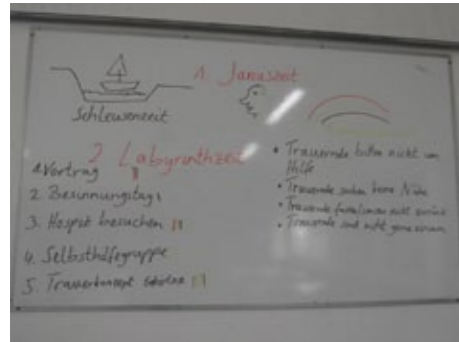 1. Januszeit
Schleusenzeit
2 Labyrinthzeit
1. Vortrag
2. Besinnungstag
3. Hospiz besuchen
4. Selbsthilfegruppe
5. Trauerkonzept
• Trauernde bitten nicht um
Hilfe
• Trauernde suchen keine Nähe
• Trauernde nicht
• Trauernde sind nicht gerne